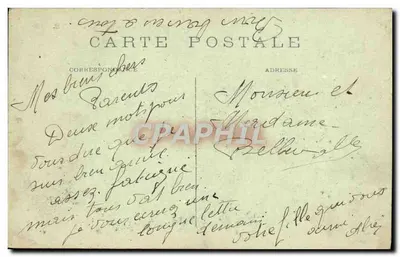 CARTE POSTALE
CORRESPONDANCE
ADRESSE
Mes biens chers
Parents
Deux mots pour
vous dire que je
suis bien
assez fatiguée
mais tout va bien
je vous une
longue lettre
demain
votre fille qui vous
aime
Monsieur et
Madame
Belleville